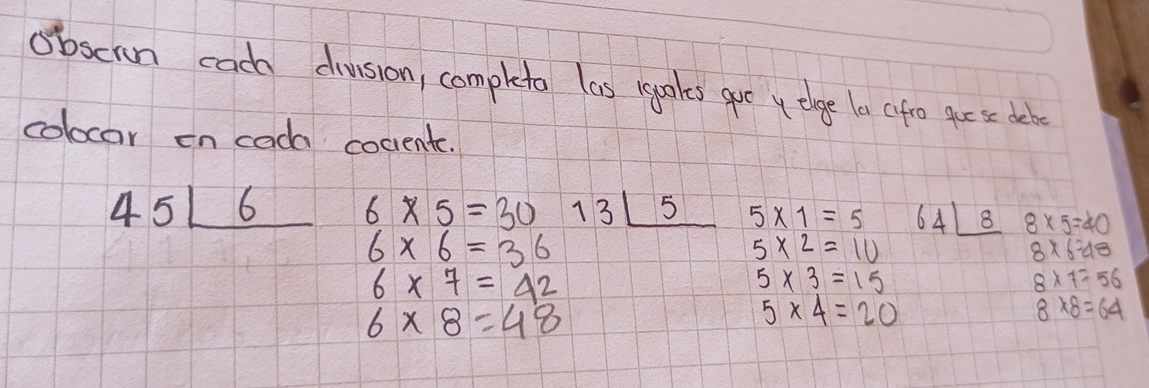 Observn cada division, completa las iguales que y elige la cifra que se debe
colocar en cada cociente.
45 6 6 x 5 = 30 13 5 5 x 1 = 5 64 8 8 x 5 = 40
6 x 6 = 36 5 x 2 = 10 8 x 6 = 48
6 x 7 = 42 5 x 3 = 15 8 x 7 = 56
6 x 8 = 48 5 x 4 = 20 8 x 8 = 64